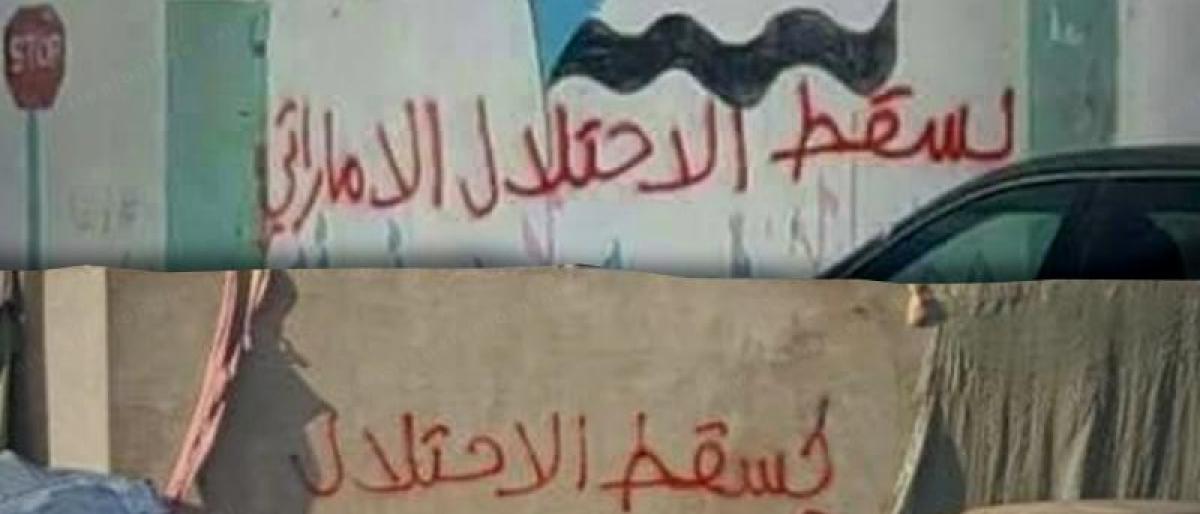 STOP
لسقط الاحتلال الاماراتي
يسقط الاحتلال